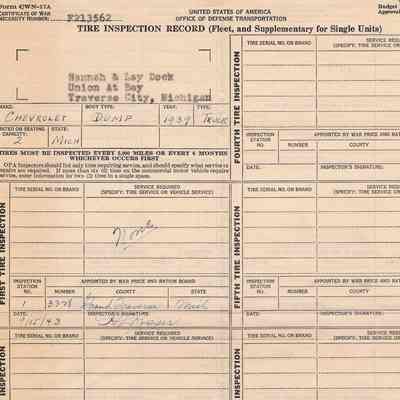 Form CWN-37A
CERTIFICATE OF WAR
NECESSITY NUMBER: F213562
UNITED STATES OF AMERICA
OFFICE OF DEFENSE TRANSPORTATION
Budget
Approval
TIRE INSPECTION RECORD (Fleet, and Supplementary for Single Units)
Hannah & Lay Dock
Union At Bay
Traverse City, Michigan
MAKE: BODY TYPE: YEAR: TYPE:
CHEVROLET DUMP 1939 TRUCK
RATED OR SEATING CAPACITY: STATE:
2 MICH
TIRES MUST BE INSPECTED EVERY 5,000 MILES OR EVERY 6 MONTHS
WHICHEVER OCCURS FIRST
OPA Inspectors should list only tires requiring service, and should specify what service or
repairs are required. If more than six (6) tires on the commercial motor vehicle require
service, enter information for two (2) tires in a single space.
FIRST TIRE INSPECTION
TIRE SERIAL NO. OR BRAND
SERVICE REQUIRED
(SPECIFY: TIRE SERVICE OR VEHICLE SERVICE)
None
INSPECTION STATION NO.
APPOINTED BY WAR PRICE AND RATION BOARD
NUMBER COUNTY STATE
1 Grand Traverse Mich
DATE: INSPECTOR'S SIGNATURE:
9/15/43
TIRE SERIAL NO. OR BRAND
SERVICE REQUIRED
(SPECIFY: TIRE SERVICE OR VEHICLE SERVICE)
INSPECTION
FOURTH TIRE INSPECTION
TIRE SERIAL NO. OR BRAND
SERVICE REQU
(SPECIFY: TIRE SERVICE OR
INSPECTION STATION NO.
APPOINTED BY WAR PRICE AND R
NUMBER COUNTY
DATE: INSPECTOR'S SIGNATURE:
FIFTH TIRE INSPECTION
TIRE SERIAL NO. OR BRAND
SERVICE REQUI
(SPECIFY: TIRE SERVICE OR
INSPECTION STATION NO.
APPOINTED BY WAR PRICE AND RA
NUMBER COUNTY
DATE: INSPECTOR'S SIGNATURE:
TIRE SERIAL NO. OR BRAND
SERVICE REQUI
(SPECIFY: TIRE SERVICE OR
INSPECTION